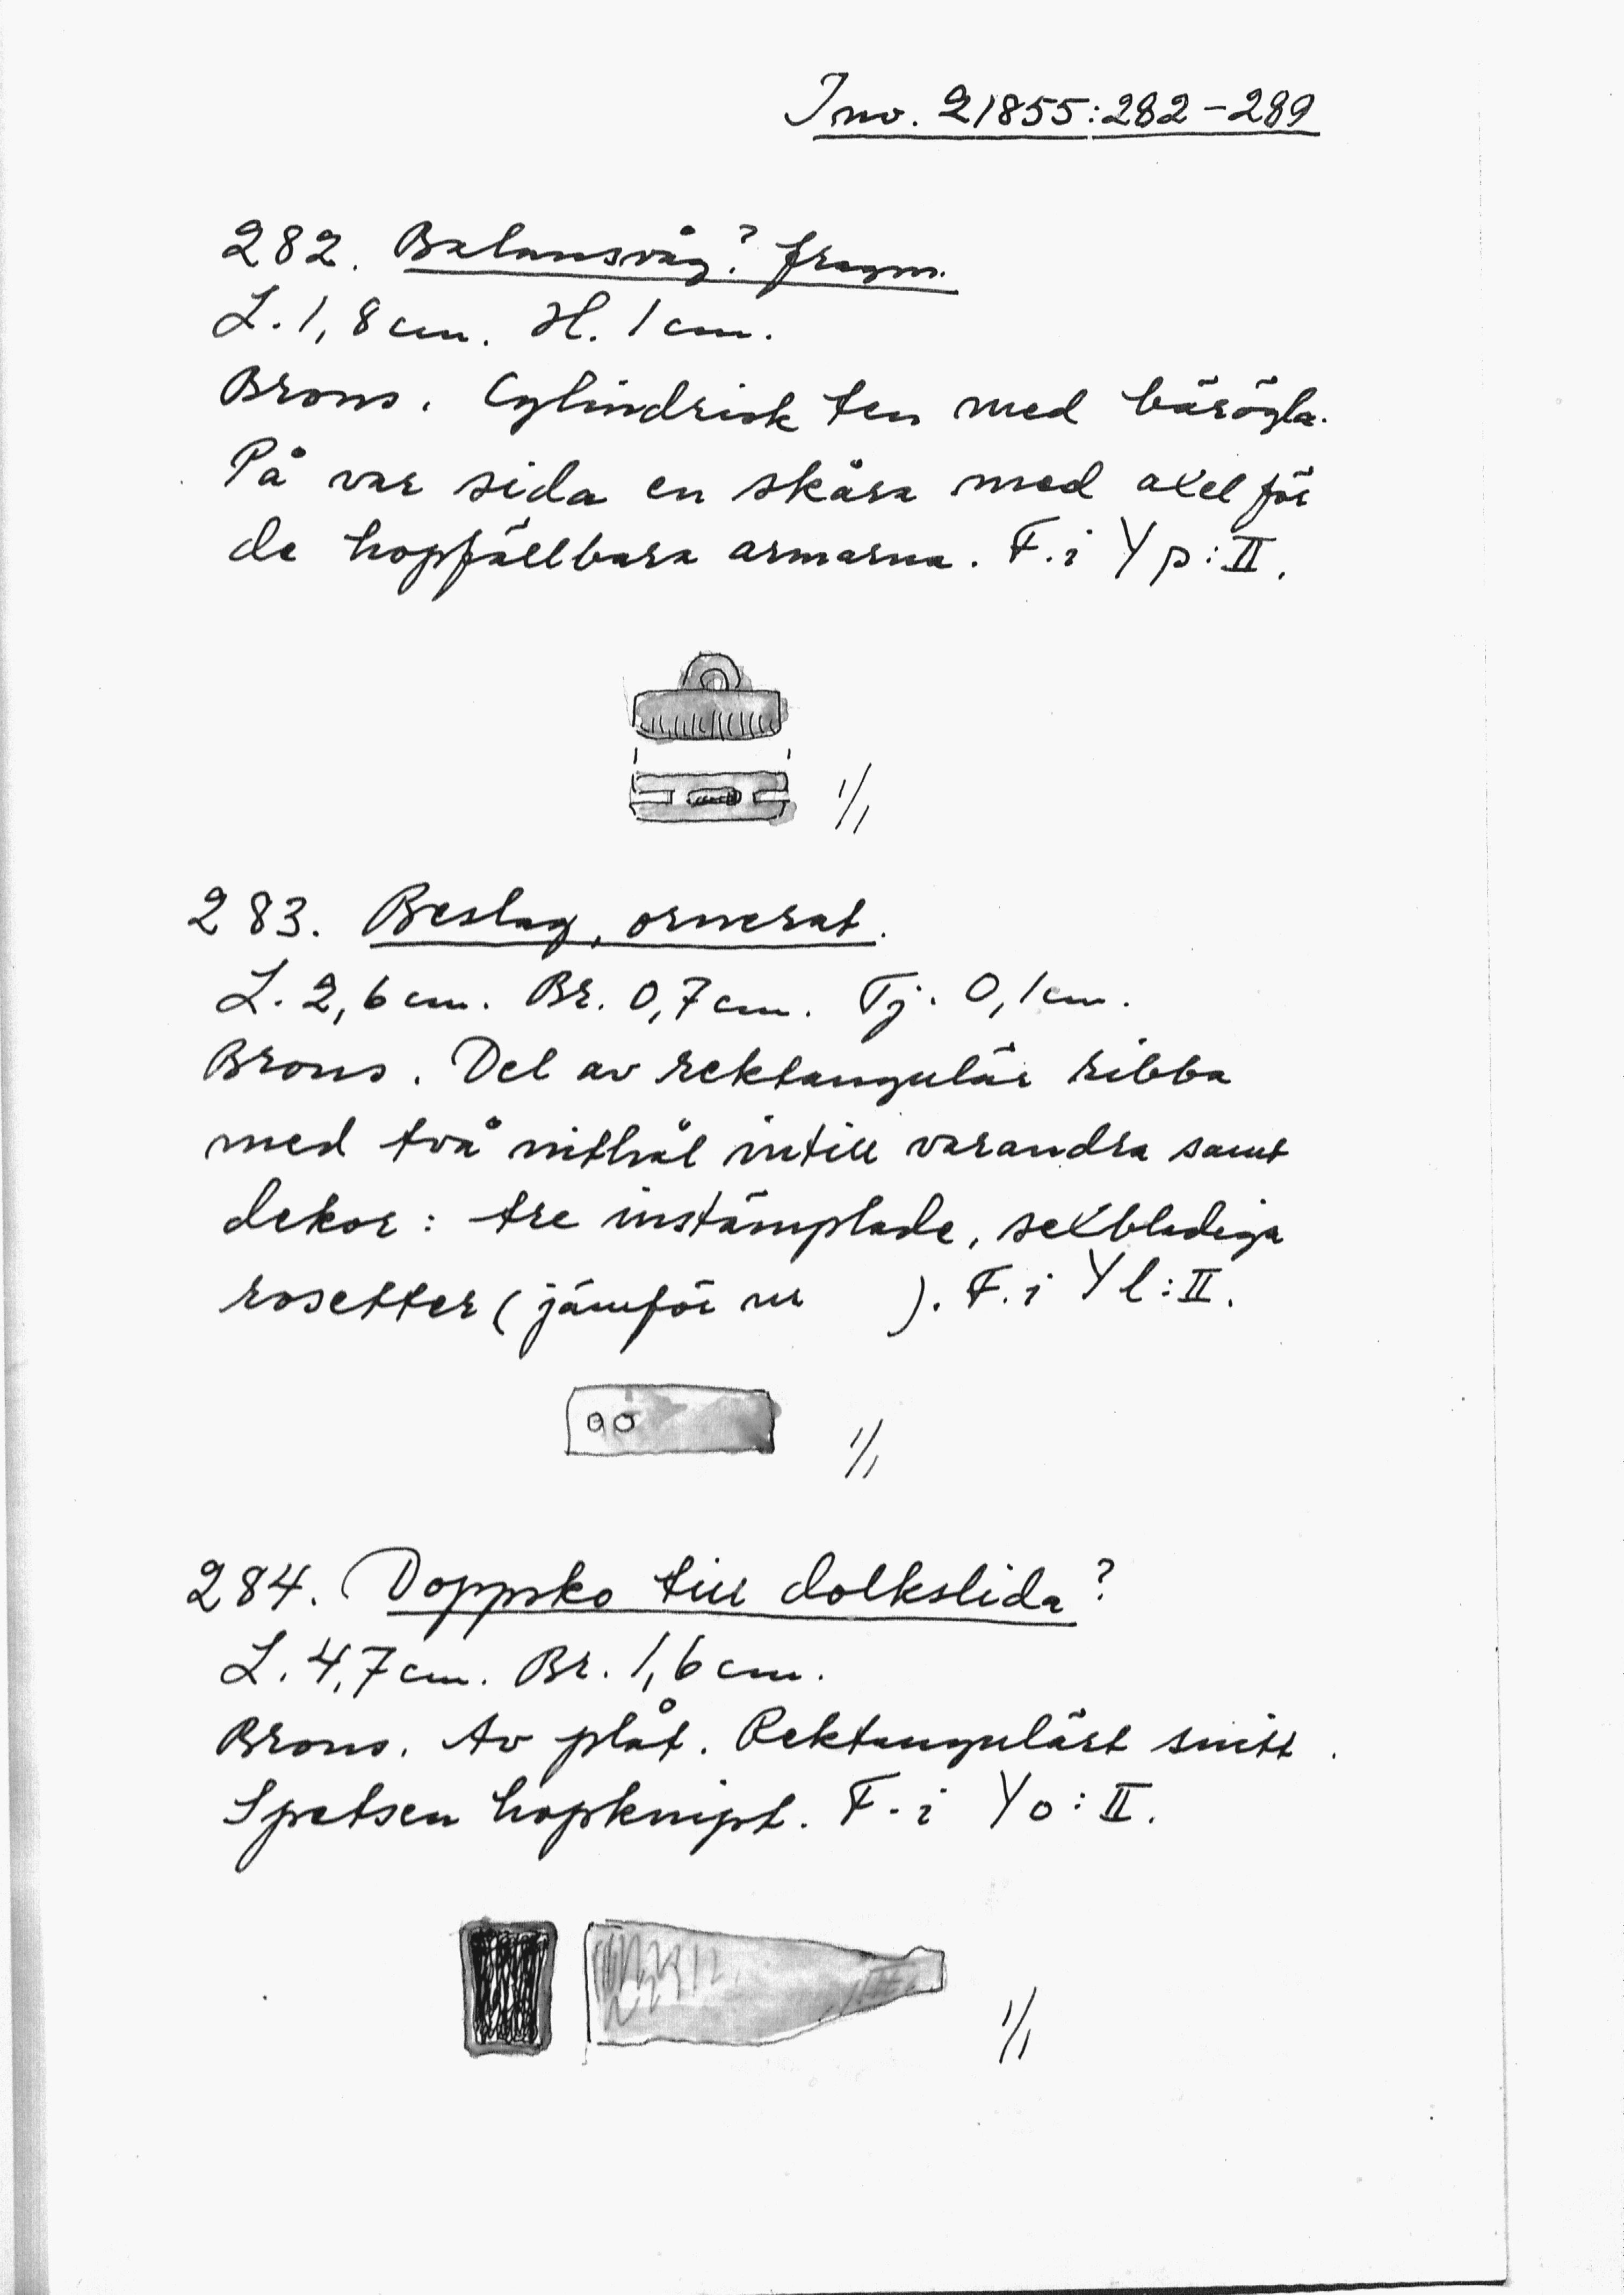 Inv. 21855:282-289
282. Balansvåg? fragm.
L. 1,8 cm. H. 1 cm.
Brons. Cylindrisk ten med bärögla.
På var sida en skåra med axel för
de hopfällbara armarna. F. i Yp:II.
1/1
283. Beslag, ornerat.
L. 2,6 cm. Br. 0,7 cm. Tj. 0,1 cm.
Brons. Del av rektangulär ribba
med två nithål intill varandra samt
dekor: tre instämplade, sexbladiga
rosetter (jämför nr ). F. i Yl:II.
1/1
284. Doppsko till dolkslida?
L. 4,7 cm. Br. 1,6 cm.
Brons. Av plåt. Rektangulärt snitt.
Spetsen hopknipt. F. i Yo:II.
1/1